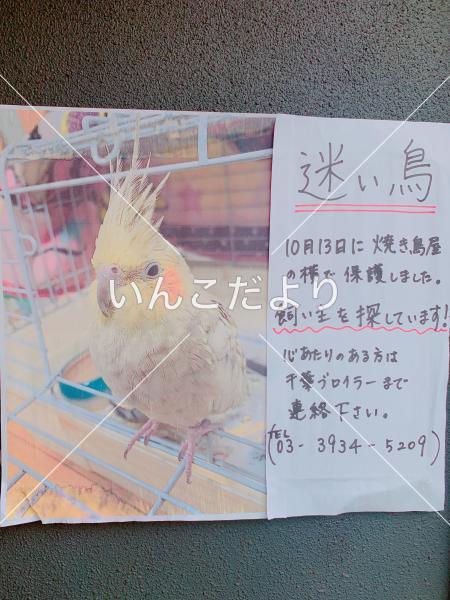 迷い鳥
10月13日に焼き鳥屋
の横で保護しました。
飼い主を探しています!
心あたりのある方は
千葉ブロイラーまで
連絡下さい。
(TEL 03-3934-5209)
いんこだより